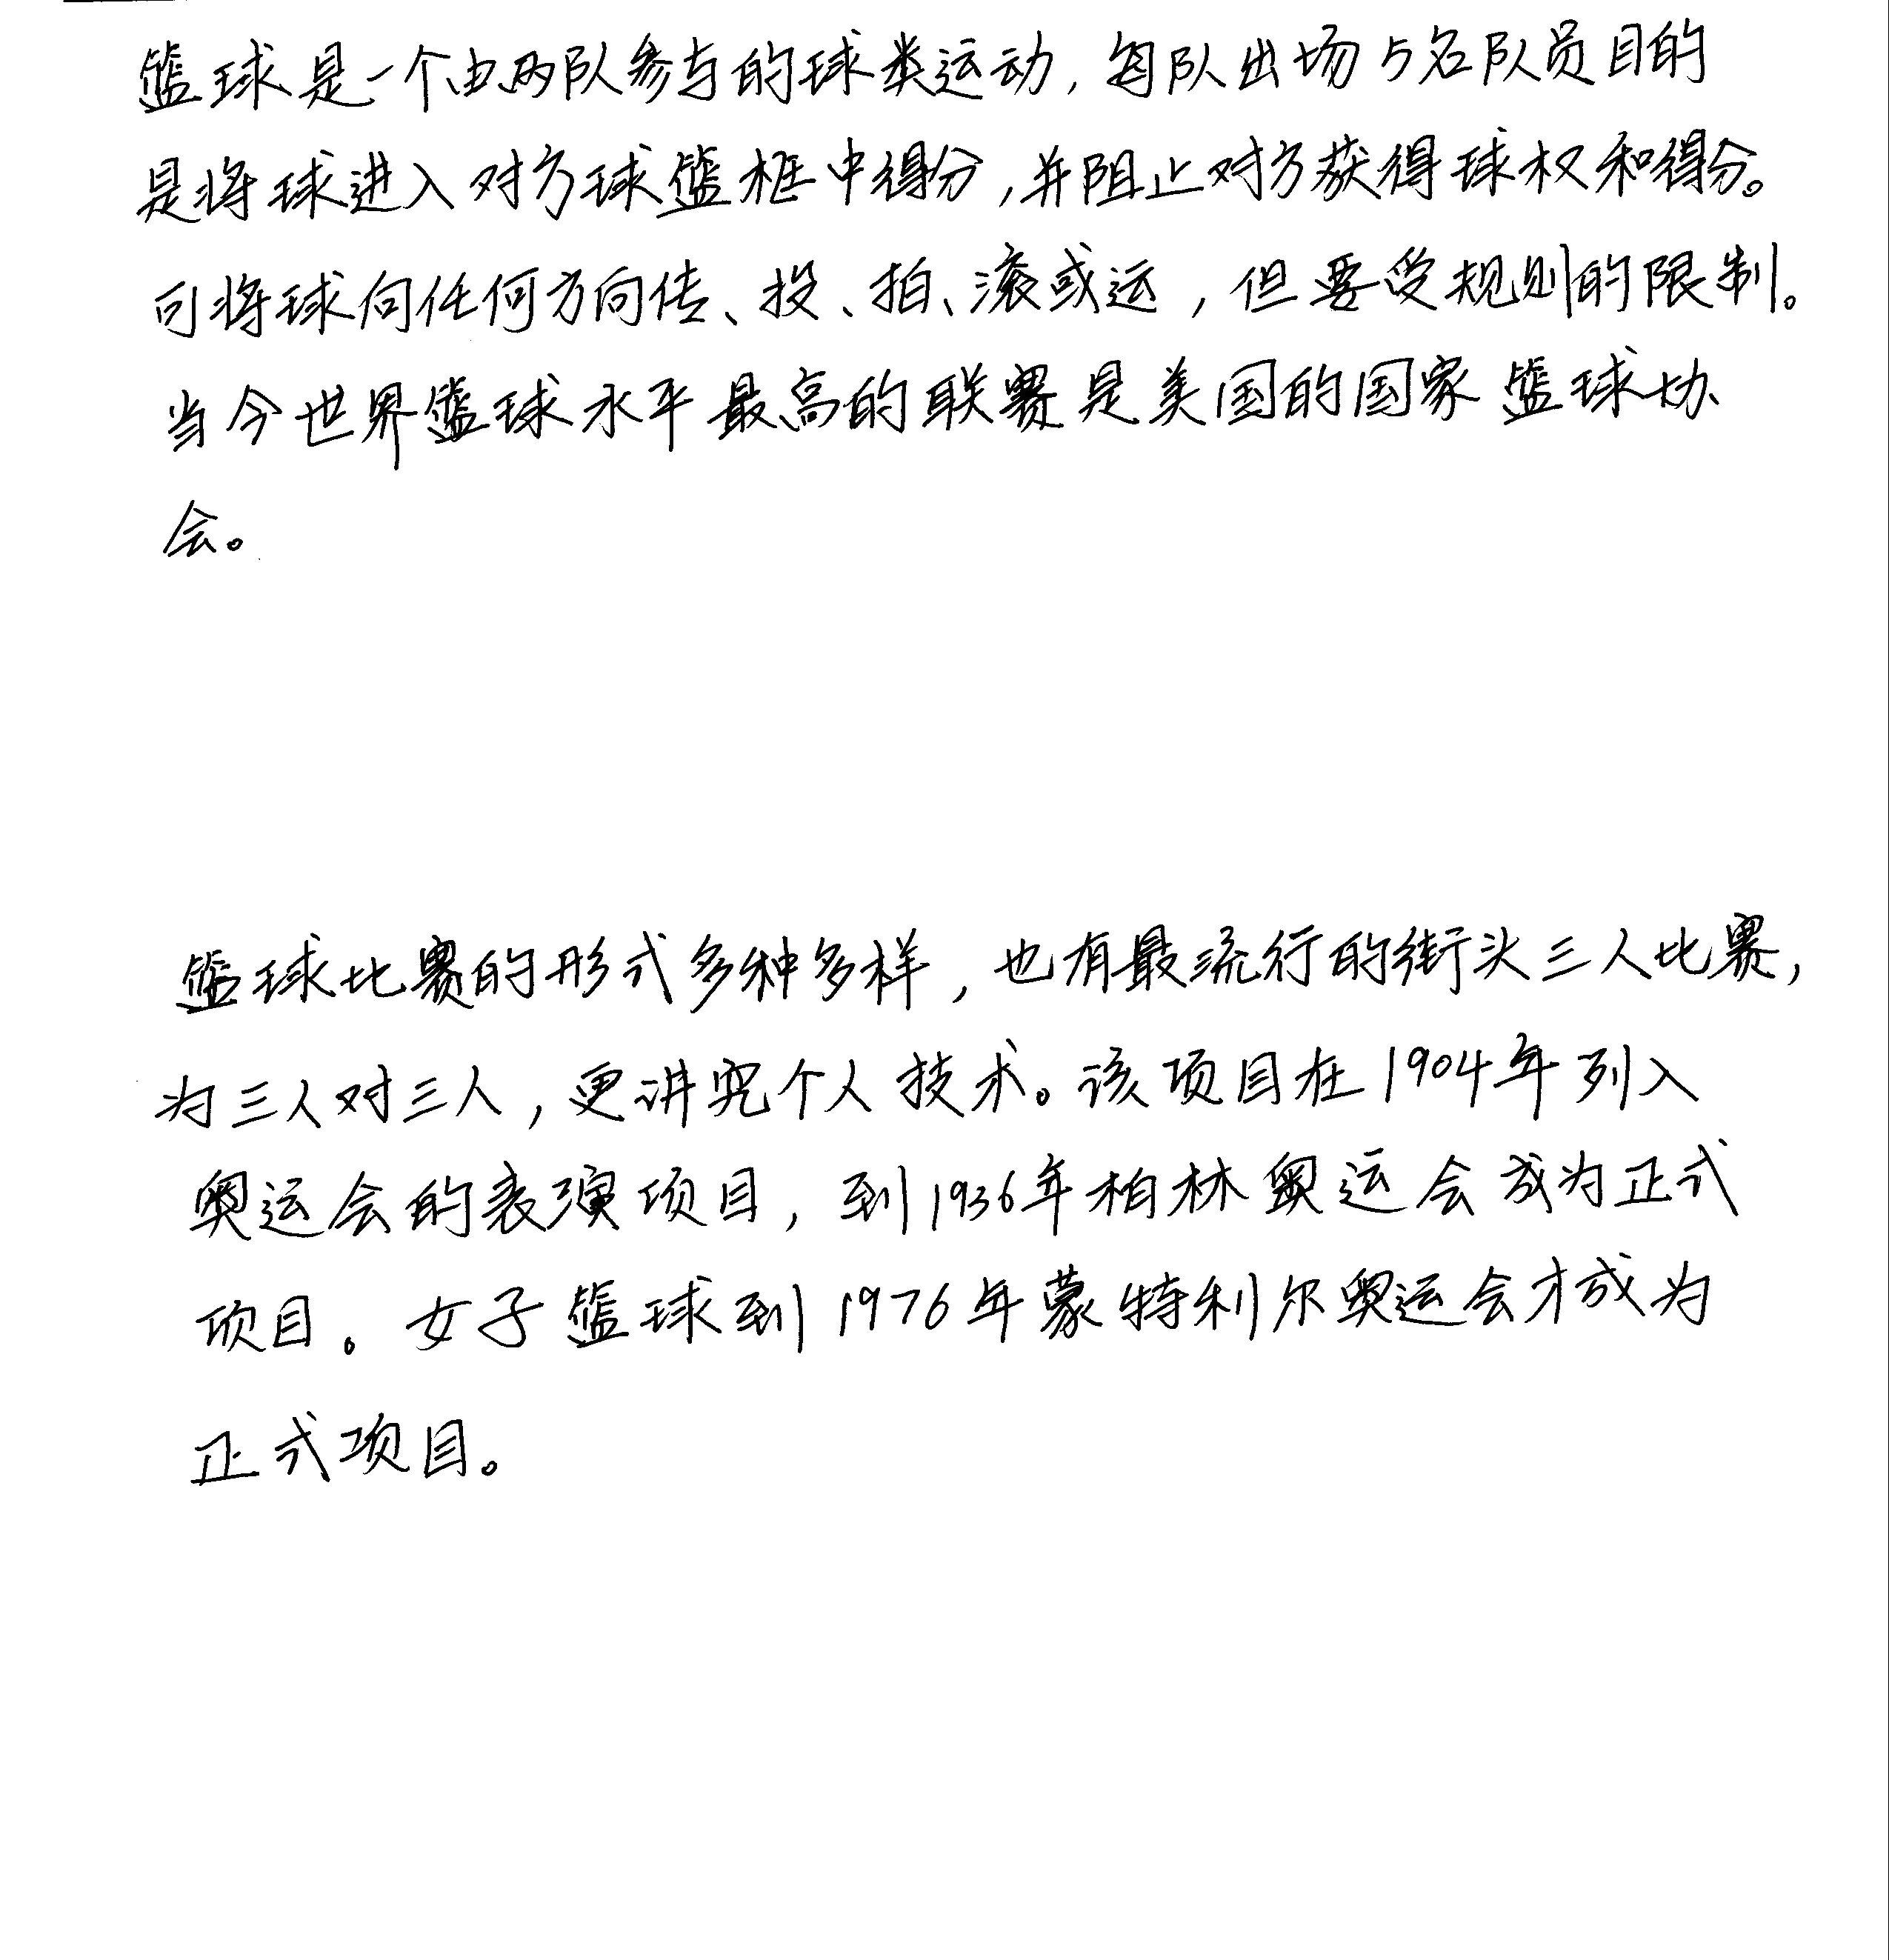 篮球是一个由两队参与的球类运动，每队出场5名队员目的
是将球进入对方球篮框中得分，并阻止对方获得球权和得分。
可将球向任何方向传、投、拍、滚或运，但要受规则的限制。
当今世界篮球水平最高的联赛是美国的国家篮球协
会。
篮球比赛的形式多种多样，也有最流行的街头三人比赛，
为三人对三人，更讲究个人技术。该项目在1904年列入
奥运会的表演项目，到1936年柏林奥运会成为正式
项目。女子篮球到1976年蒙特利尔奥运会才成为
正式项目。